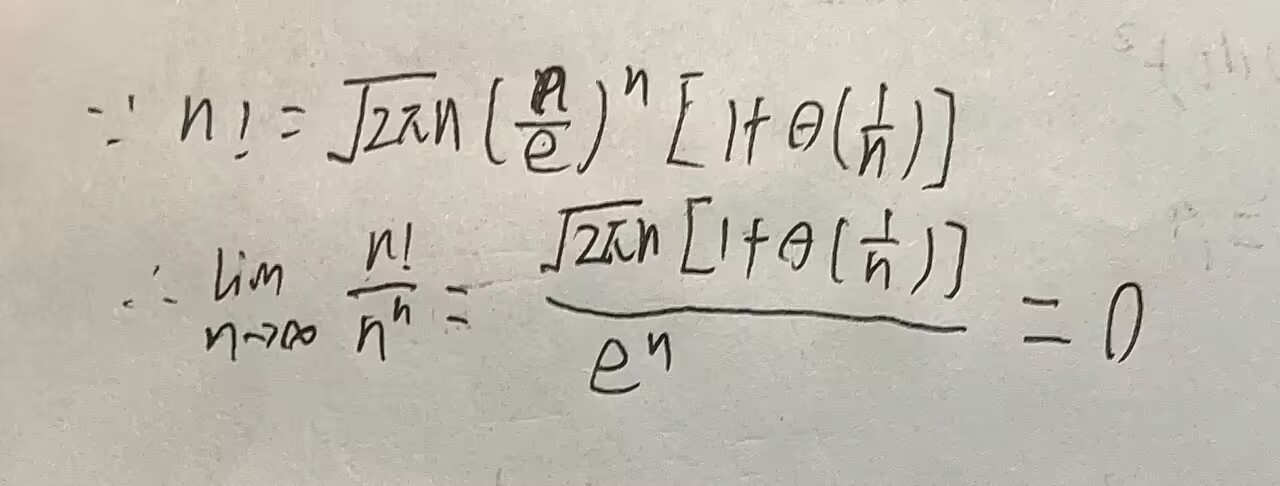 ∵ n! = √2π n (n/e)^n [1+θ(1/n)]
∴ lim n→∞ n!/n^n = √2π n [1+θ(1/n)] / e^n = 0